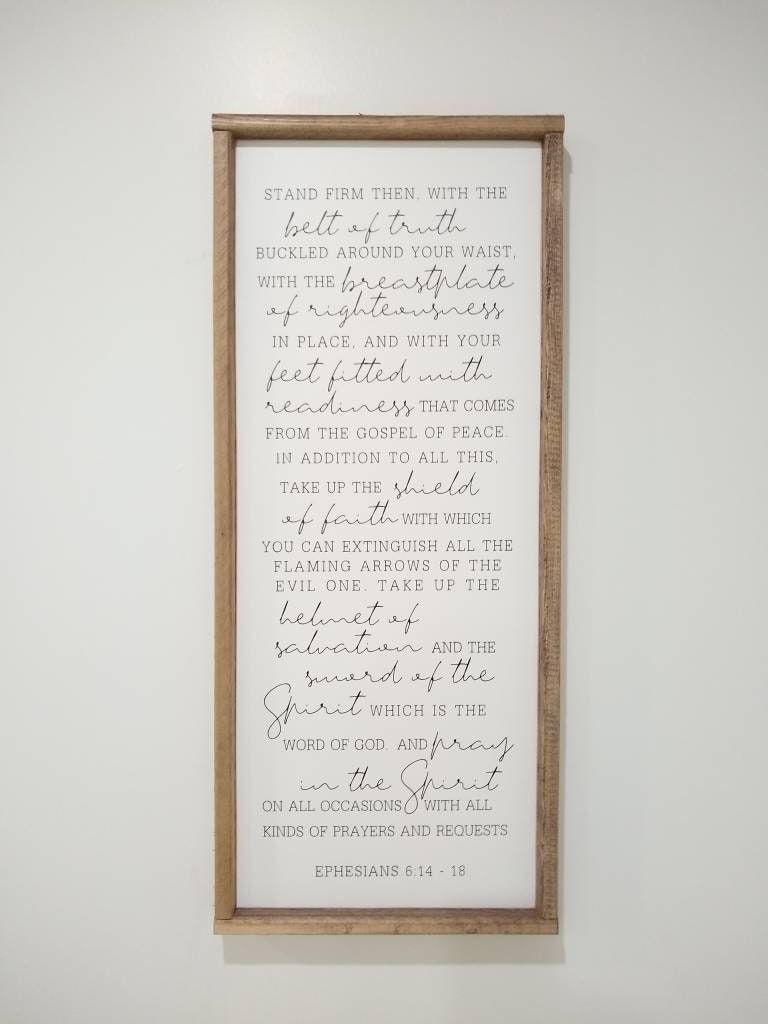 STAND FIRM THEN, WITH THE
belt of truth
BUCKLED AROUND YOUR WAIST,
WITH THE breastplate
of righteousness
IN PLACE, AND WITH YOUR
feet fitted with
readiness THAT COMES
FROM THE GOSPEL OF PEACE.
IN ADDITION TO ALL THIS,
TAKE UP THE shield
of faith WITH WHICH
YOU CAN EXTINGUISH ALL THE
FLAMING ARROWS OF THE
EVIL ONE. TAKE UP THE
helmet of
salvation AND THE
sword of the
Spirit WHICH IS THE
WORD OF GOD. AND pray
in the Spirit
ON ALL OCCASIONS WITH ALL
KINDS OF PRAYERS AND REQUESTS
EPHESIANS 6:14 - 18